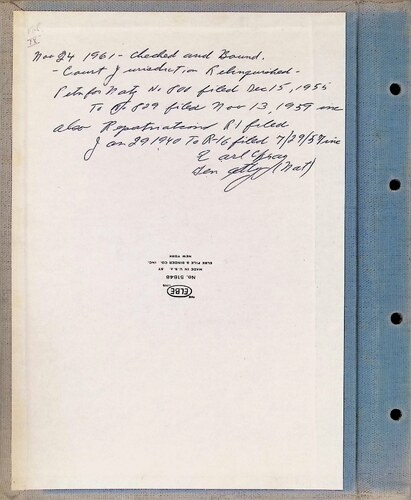 Nov 24 1961 - Checked and Bound.
- Court Jurisdiction Relinquished -
Petn for Naty No 801 filed Dec 15, 1955
To No 829 filed Nov 13, 1959 inc
also Repatriations R1 filed
Jan 29 1940 To R-16 filed 7/29/57 inc
Earl
(Nat)
THE
ELBE
LINE
No. 5184B
MADE IN U.S.A. BY
ELBE FILE & BINDER CO. INC.
NEW YORK